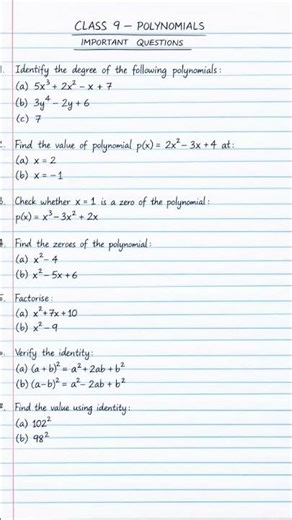 CLASS 9 – POLYNOMIALS
IMPORTANT QUESTIONS
1. Identify the degree of the following polynomials:
(a) 5x³ + 2x² – x + 7
(b) 3y⁴ – 2y + 6
(c) 7
2. Find the value of polynomial p(x) = 2x² – 3x + 4 at:
(a) x = 2
(b) x = –1
3. Check whether x = 1 is a zero of the polynomial:
p(x) = x³ – 3x² + 2x
4. Find the zeroes of the polynomial:
(a) x² – 4
(b) x² – 5x + 6
5. Factorise:
(a) x² + 7x + 10
(b) x² – 9
Verify the identity:
(a) (a + b)² = a² + 2ab + b²
(b) (a – b)² = a² – 2ab + b²
Find the value using identity:
(a) 102²
(b) 98²